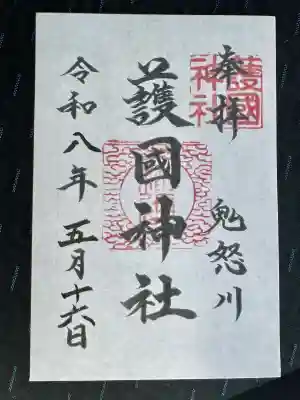 奉拝 鬼怒川
護國神社
令和八年五月十六日
護國
神社